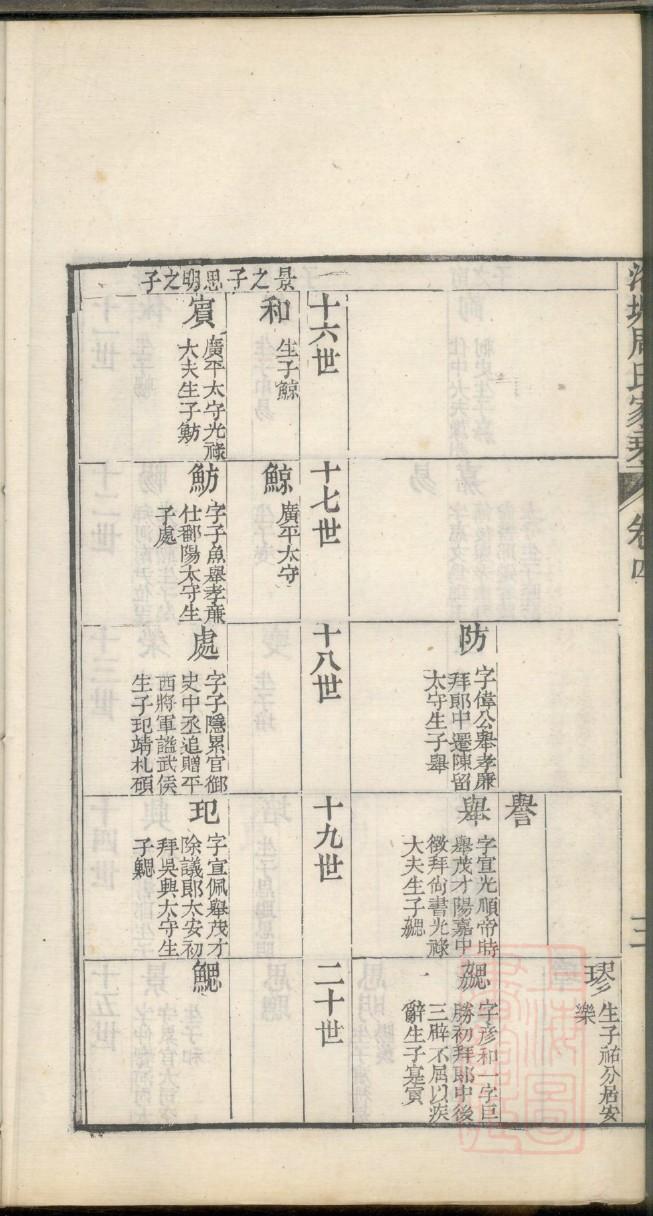 周氏家乘
卷四
三
防
字偉公舉孝廉
拜郎中遷陳留
太守生子舉
譽
舉
字宣光順帝時
舉茂才陽嘉中
徵拜尚書光祿
大夫生子勰
璆
生子祐分居安
樂
勰
字彥和一字巨
勝初拜郎中後
三辟不屈以疾
辭生子寔賓
十六世
十七世
十八世
十九世
二十世
景之子
思明之子
和
生子鯨
賓
廣平太守光祿
大夫生子魴
鯨
廣平太守
魴
字子魚舉孝廉
仕鄱陽太守生
子處
處
字子隱累官御
史中丞追贈平
西將軍諡武侯
生子玘靖札碩
玘
字宣佩舉茂才
除議郎太安初
拜吳興太守生
子鰓
鰓